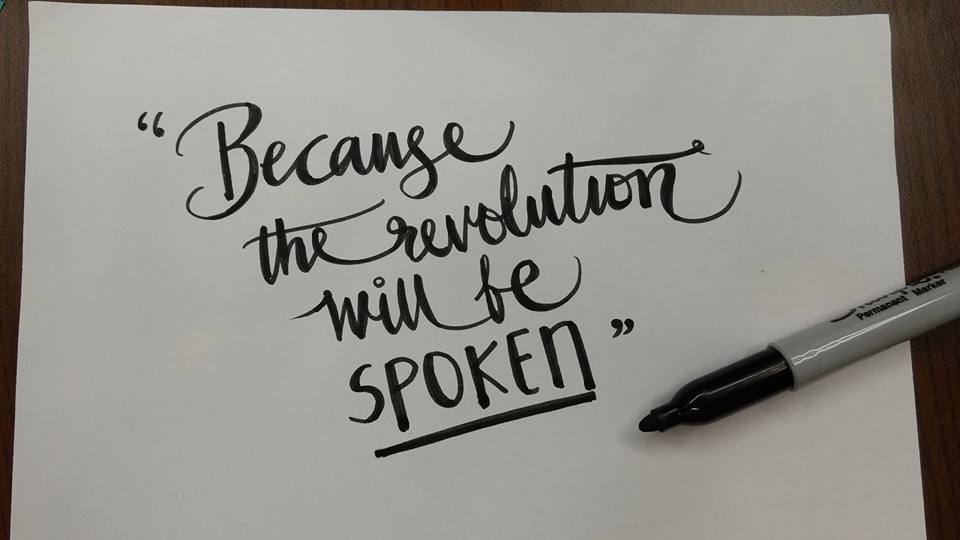 “Because
the revolution
will be
SPOKEN”
Permanent Marker